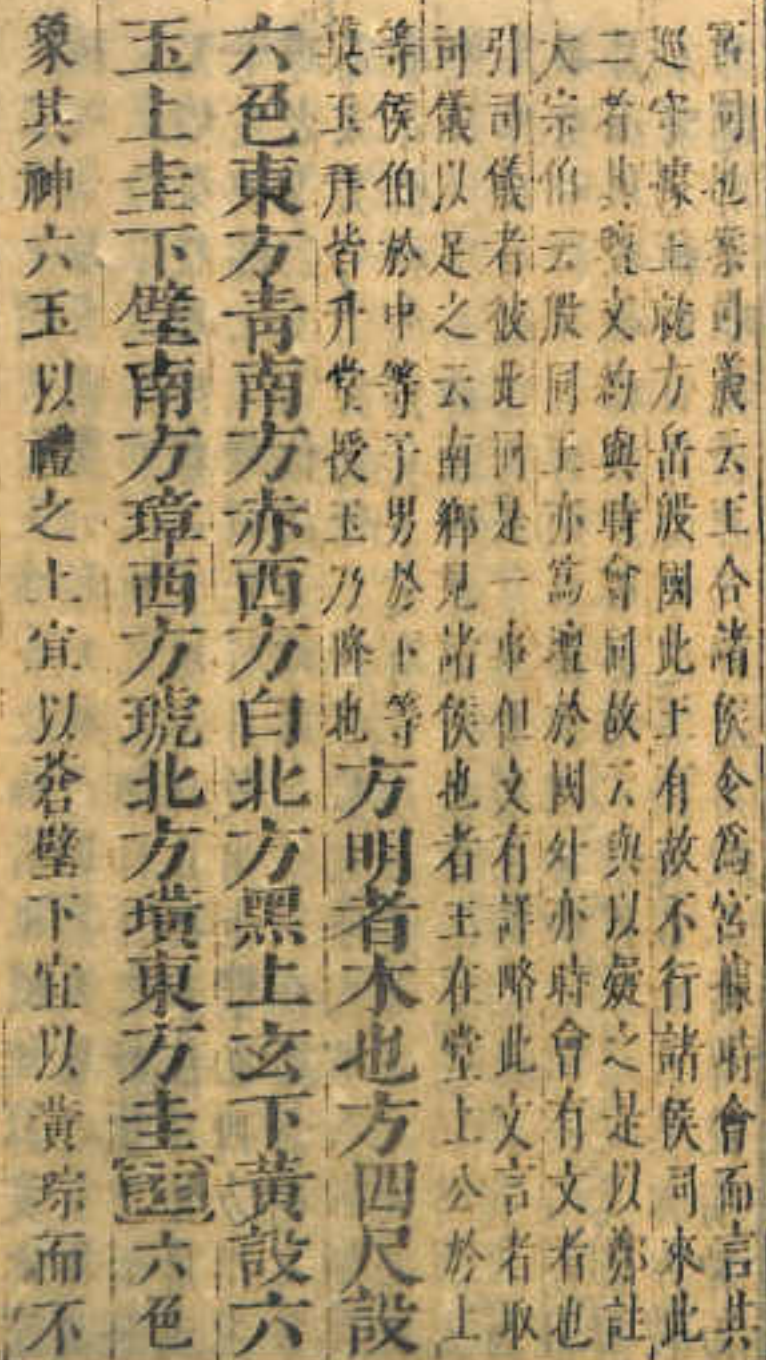 宮同也案司儀云王合諸侯令爲宮據時會而言其
巡守據王就方岳殷國此王有故不行諸侯司來此
二者其壇文約與時會同故云與以疑之是以鄭註
大宗伯云殷同王亦爲壇於國外亦時會有文者也
引司儀者彼此同是一事但文有詳略此文言者取
司儀以足之云南鄉見諸侯也者王在堂上公於上
等侯伯於中等子男於下等
奠玉拜皆升堂授玉乃降也
方明者木也方四尺設
六色東方青南方赤西方白北方黑上玄下黃設六
玉上圭下璧南方璋西方琥北方璜東方圭註六色
象其神六玉以禮之上宜以蒼璧下宜以黃琮而不